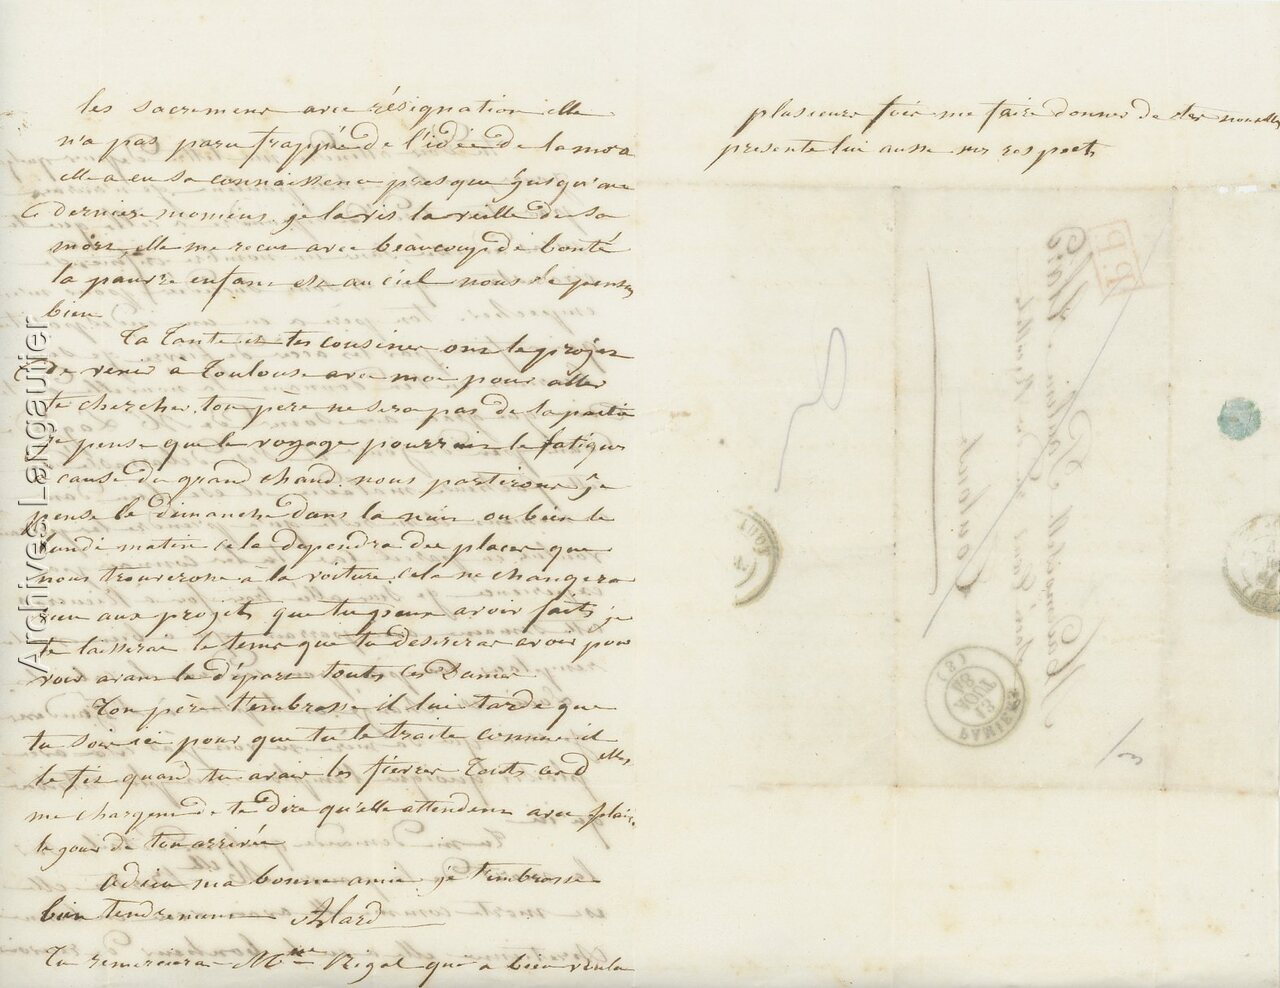 les sacremens avec résignation elle
n'a pas paru frappée de l'idée de la mort
elle a eu sa connaissance presque jusqu'au
dernier momens. je la vis la veille de sa
mort, elle me recut avec beaucoup de bonté
la pauvre enfant est au ciel nous le pensons
bien
Ta Tante et tes cousines ont le projet
de venir a Toulouse avec moi pour aller
te chercher, ton père ne sera pas de la partie
je pense que le voyage pourrait le fatiguer
cause du grand chaud. nous partirons je
pense le dimanche dans la nuit ou bien le
lundi matin cela dependra des places que
nous trouverons à la voiture, cela ne changera
rien aux projets que tu peux avoir faits, je
te laisserai le tems que tu desireras avoir pour
voir avant le départ toutes ces Dames
Ton père t'embrasse il lui tarde que
tu sois ici pour que tu le traite comme il
le fit quand tu avais les fievres Toutes ces Delles
me chargent de te dire qu'elle attendent avec plaisir
le jour de ton arrivée
adieu ma bonne amie je t'embrasse
bien tendrement Alard
Tu remercieras Mme Rigal que a bien voulu
plusieurs fois me faire donner de tes nouvelles
presente lui aussi mes respects
P.P.
Mademoiselle
Toulouse
PAMIERS (8)
31
AOUT
AOUT
Archives Langautier